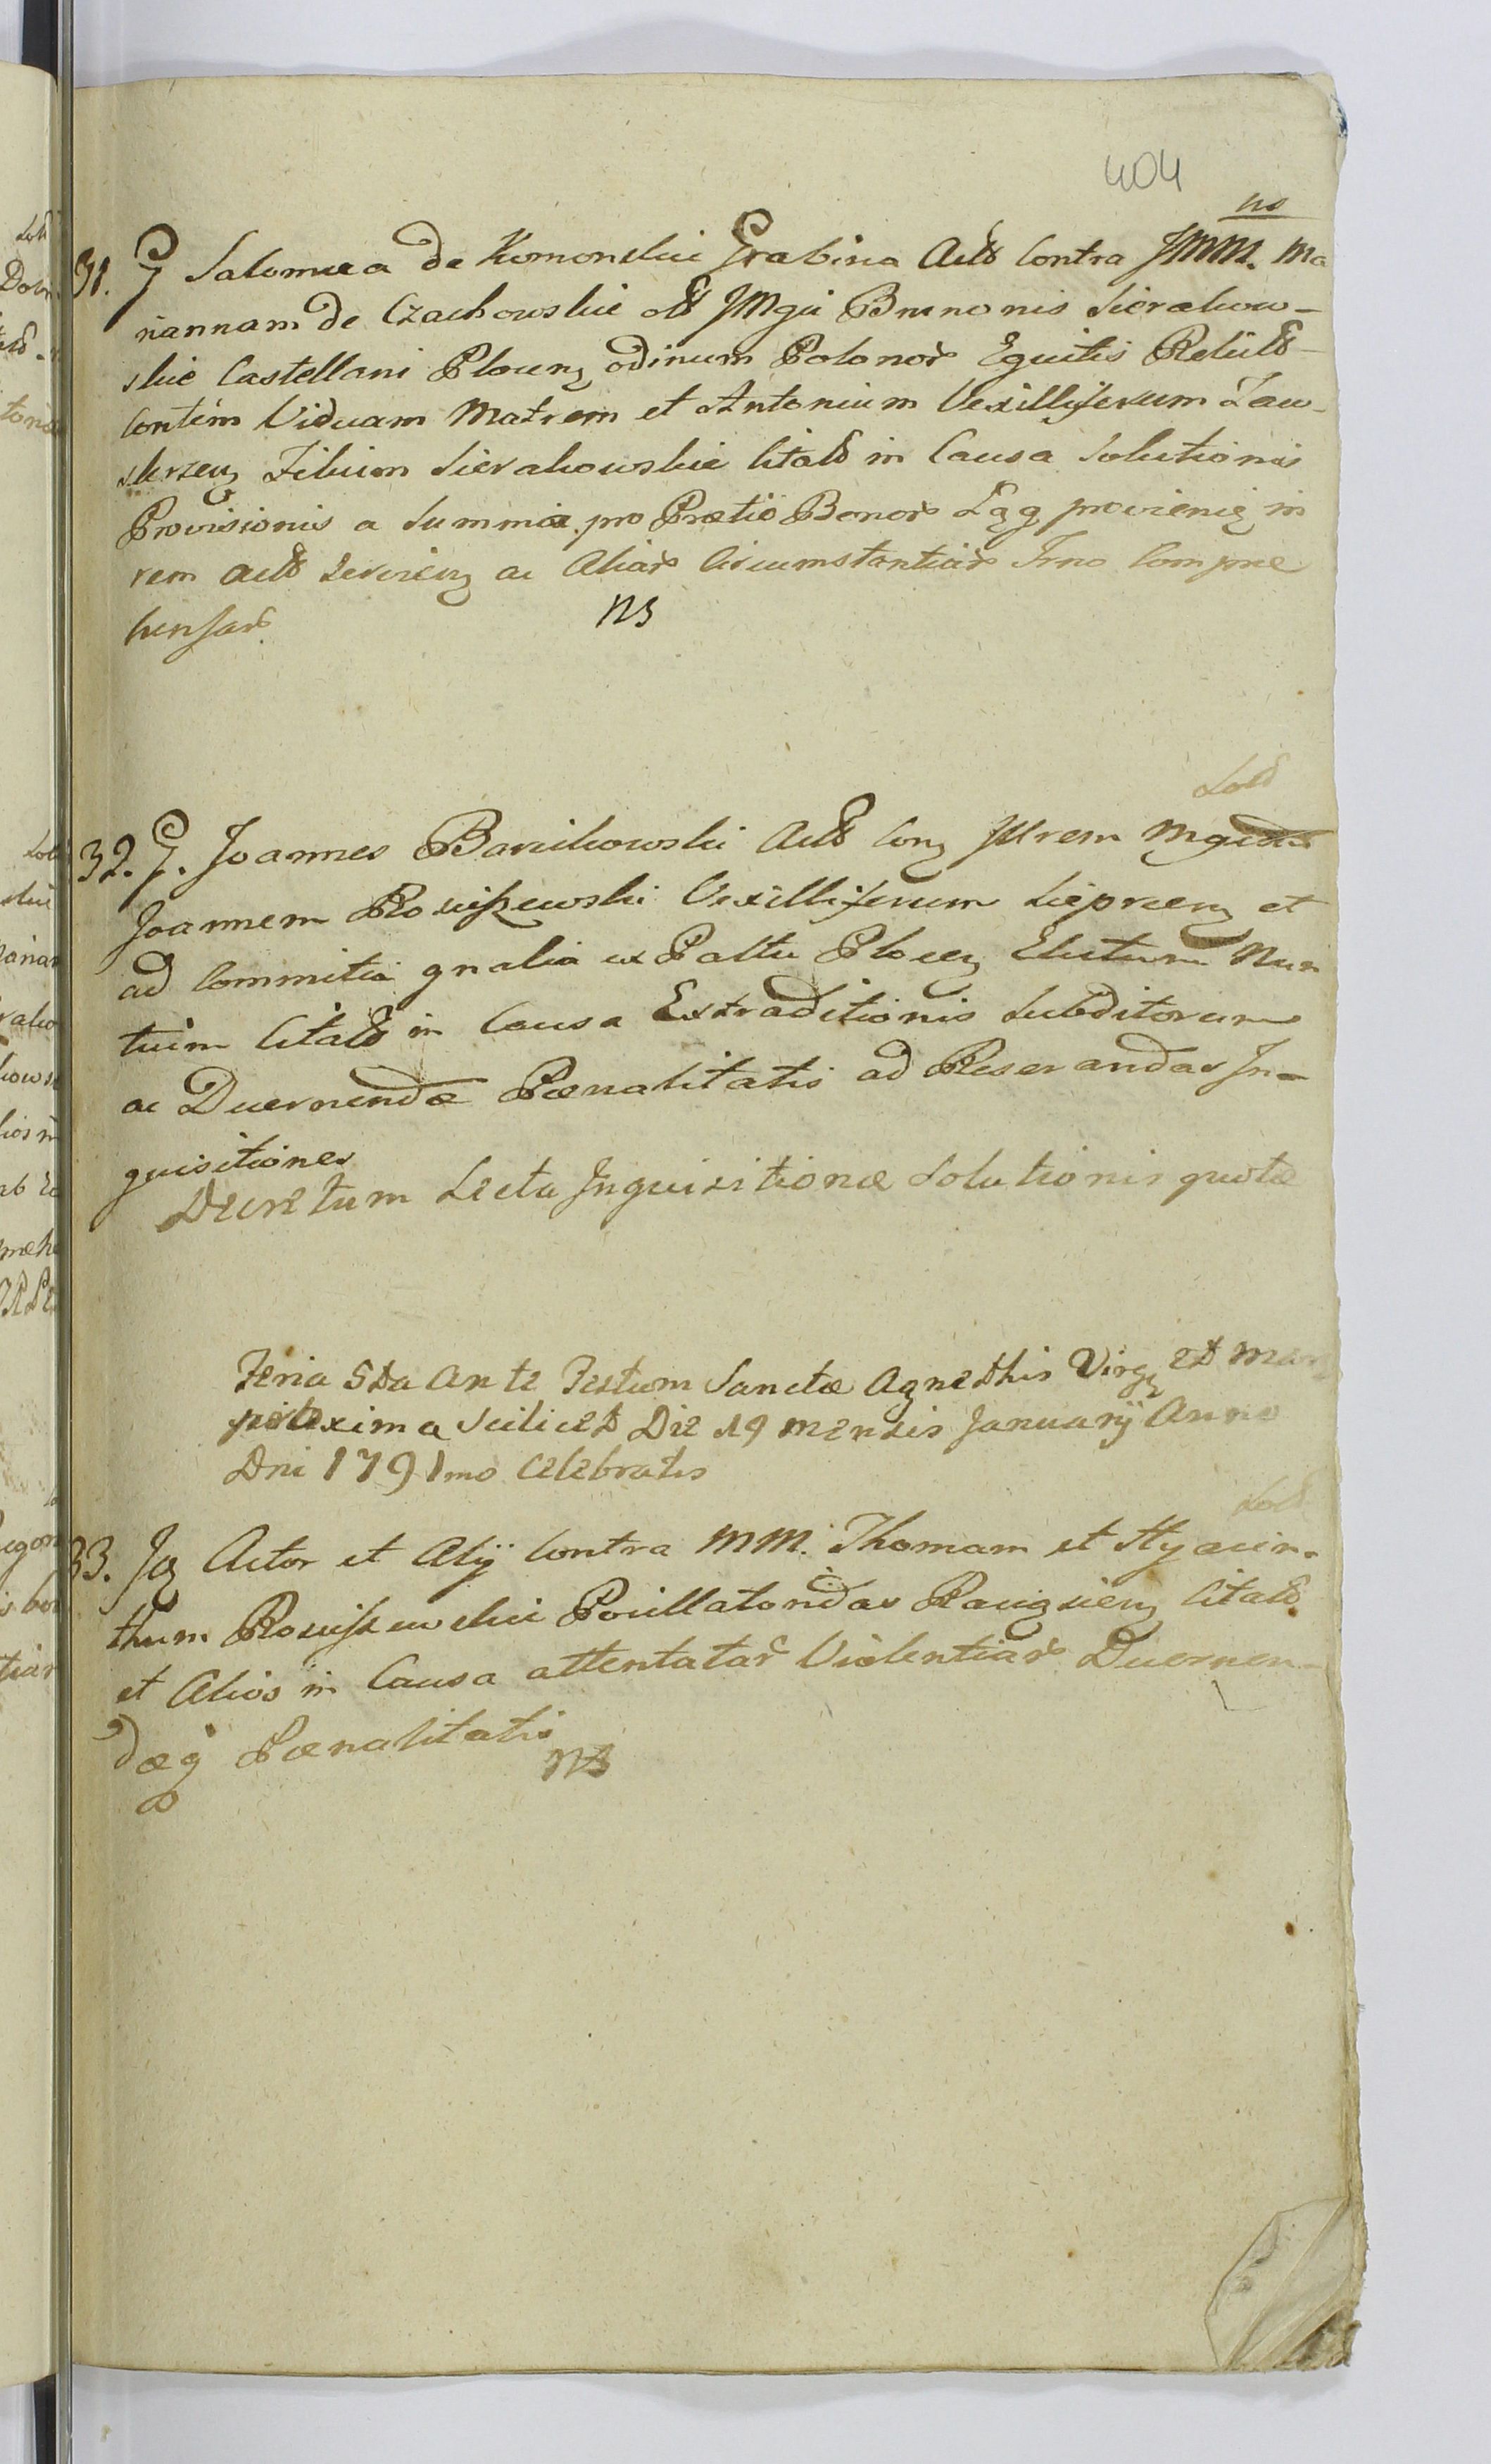 404
ns
31. G Salomea de Komorskie Grabina Actt Contra JMM. Ma
riannam de Czachowskie ott JMgci Brunonis Sierakow-
skie Castellani Plocen odinum Polonor Equitis Relict
Viduam Matrem et Antonium Vexilliferum Zaw-
skrzen Filium Sierakowskie Citatt in Causa Solutionis
Provisionis a Summa pro Prætio Bonor provenien in
rem Actt ac Aliar Circumstantiar Trno Compræ
hensar
ns
Sott
32. G. Joannes Bankowski Actt Con JUrem Mgcum
Joannem Rosciszewski Vexilliferum Sieprcen et
ad Commitia gnalia ex Paltu Plocen Electum Nun
tium Citatt in Causa Extraditionis Subditorum
ac Decernendæ Pœnalitatis ad Reserandas In-
quisitiones
Decretum Lecta Inquisitionæ Solutionis quotæ
Feria 5ta ante Festum Sanctæ Agnethis Virg et Mar
proxima Scilicet Die 19 mensis Januarij Anno
Dni 1791mo Celebratis
Sott
33. Actor et Alij Contra MM. Thomam et Hyacin-
thum Rosciszewskie Pocillatoridas Raciązien Citatt
et Alios in Causa attentatar Violentiar Decernen-
dæq Pœnalitatis
ns